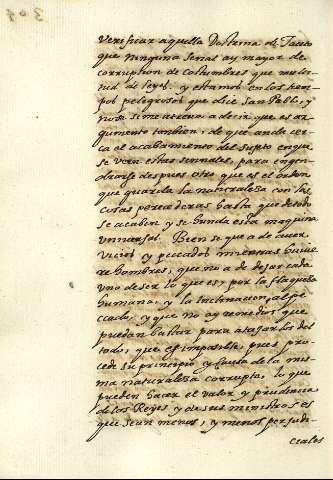 Verificar aquella Doctrina de Tacito
que ninguna señal ay mayor de
corruption de Costumbres que multi-
tud de leyes. y estamos en los tiem-
pos peligrosos que dice San Pablo, y
no se si me atreva a decir que es ar-
gumento tambien, de que anda cer-
ca el acabamiento del sujeto en que
se veen estas señales, para engen-
drarse despues otro que es el orden
que guarda la naturaleza con las
cosas pereçederas hasta que de todo
se acaben y se hunda esta maquina
universal. Bien se que a de aver
Vicios y peccados mientras huviere
hombres, que no a de dejar cada
uno de ser lo que es, por la flaqueza
humana, y la Inclinacion al pe-
ccado, y que no ay remedios que
puedan bastar para atajarlos del
todo, que es imposible, pues pro-
cede su principio y causa de la mis-
ma naturaleza corrupta, lo que
pueden hacer el valor y prudencia
de los Reyes y de sus ministros es
que sean menos, y menos perjudi-
ciales